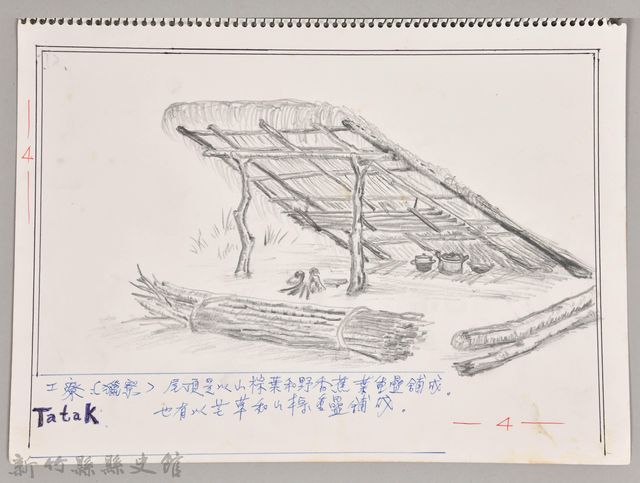 4
工寮〈獵寮〉屋頂是以山棕葉和野香蕉葉重疊舖成。
Tatak 也有以芒草和山棕重疊舖成。
4
新竹縣縣史館